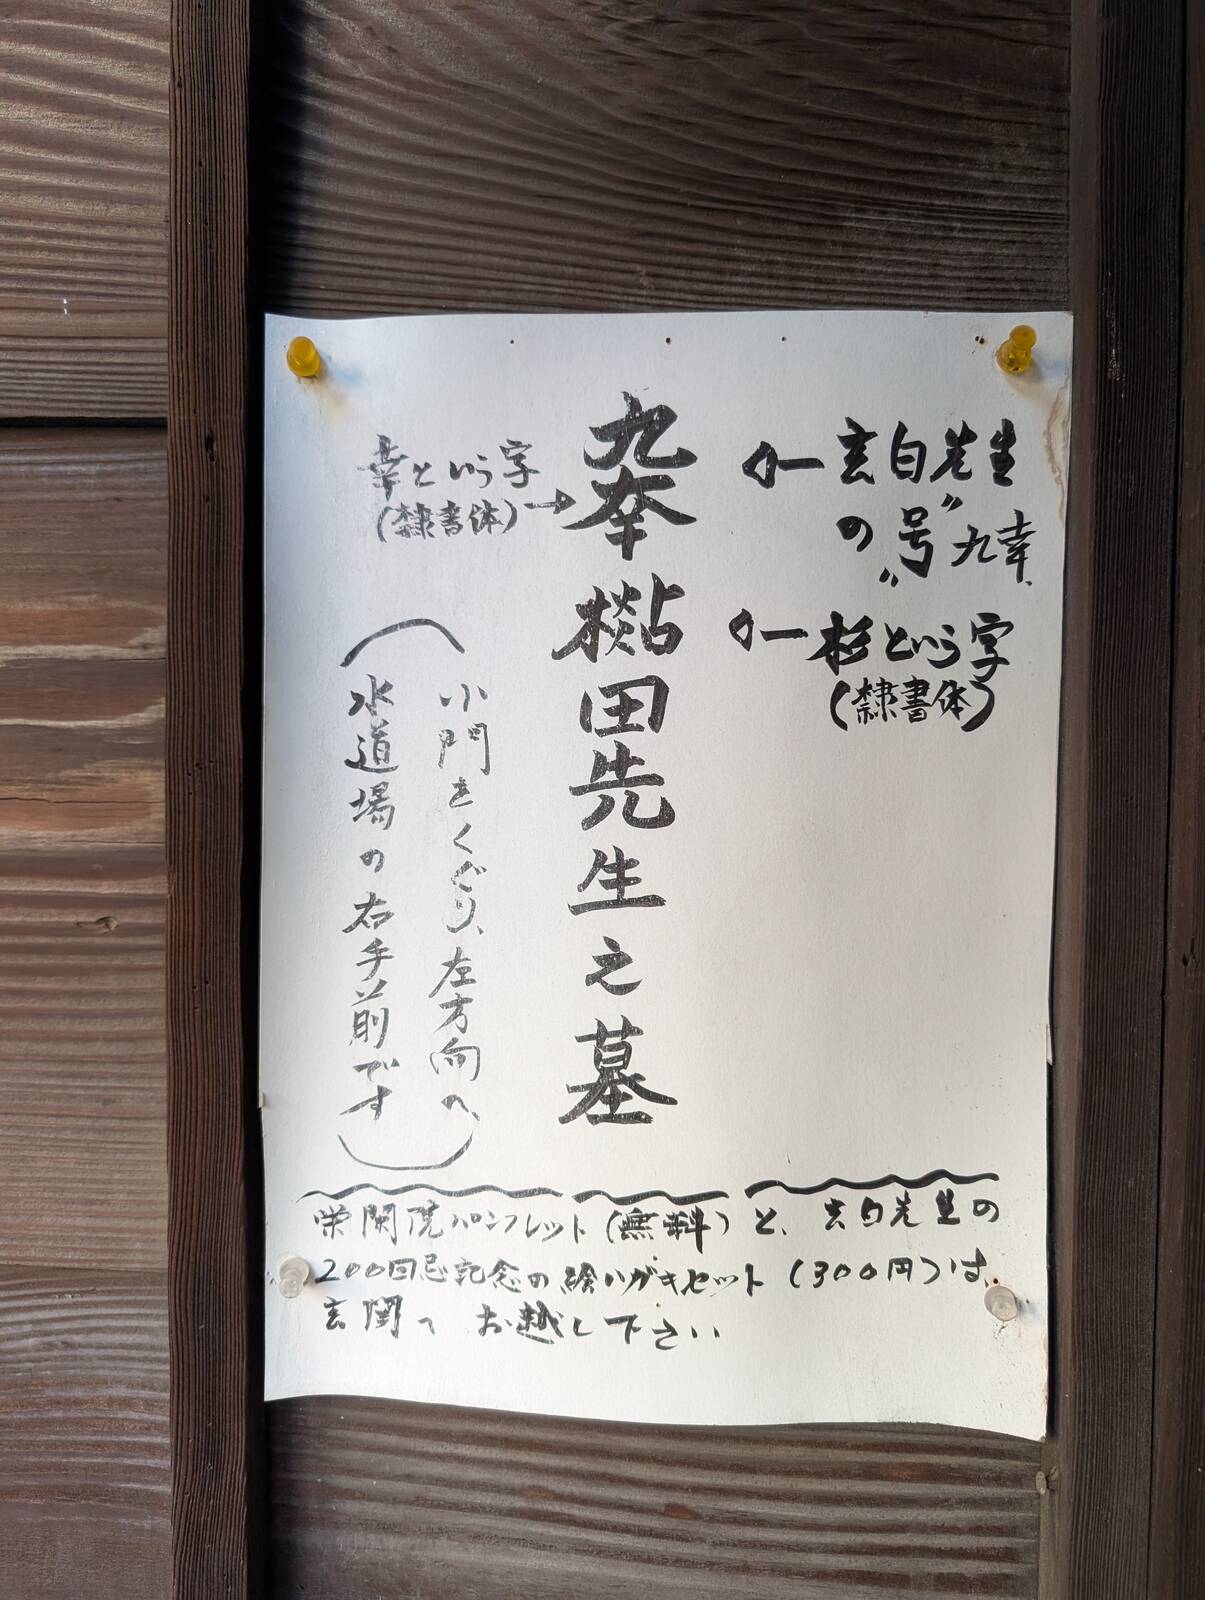 玄白先生
の"号"九幸
杉という字
(隷書体)
九幸杉田先生之墓
幸という字
(隷書体)
(小門をくぐり、左方向へ、
水道場の右手前です)
栄閑院パンフレット(無料)と、玄白先生の
200回忌記念の絵ハガキセット(300円)は、
玄関へお越し下さい